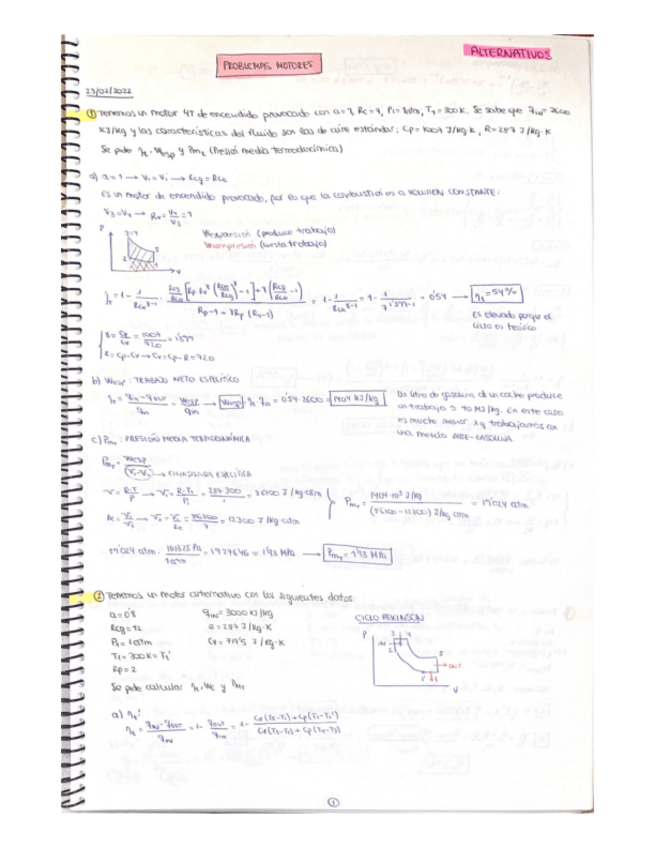 ALTERNATIVOS
PROBLEMAS MOTORES
23/02/2022
① Tenemos un motor 4T de encendido provocado con a=1, Rc=7, P₁=1atm, T₁=300K. Se sabe que qIN=2600
KJ/Kg y las características del fluido son las de aire estándar: Cp=1007 J/kg·K, R=287 J/kg·K
Se pide ηt, Wesp y Pmt (Presión media termodinámica)
a) a=1 → V₁=V₁' → Rcg=Rce
Es un motor de encendido provocado, por lo que la combustión es a VOLUMEN CONSTANTE:
V₃=V₄ → Rv=V₄/V₃=1
Wexpansión (produce trabajo)
Wcompresión (cuesta trabajo)
=0'54 → ηt=54%
Es elevado porque el
ciclo es teórico
R=Cp-Cv → Cv=Cp-R=720
b) Wesp: TRABAJO NETO ESPECÍFICO
ηt=(qIN-qOUT)/qIN=Wesp/qIN → Wesp=ηt·qIN=0'54·2600=1404 KJ/kg
Un litro de gasolina de un coche produce
un trabajo > 40 MJ/kg. En este caso
es mucho menor xq trabajamos con
una mezcla AIRE-GASOLINA.
c) Pmt: PRESIÓN MEDIA TERMODINÁMICA
Pmt=Wesp/(V₁-V₂) → CILINDRADA ESPECÍFICA
V=R·T/P → V₁=R·T₁/P₁=287·300/1=86100 J/kg·atm
Rc=V₁/V₂ → V₂=V₁/Rc=86100/7=12300 J/kg·atm
Pmt=1404·10³ J/kg/(86100-12300) J/kg·atm=19'024 atm
19'024 atm · 101325 Pa/1atm=1927646=1'93 MPa → Pmt=1'93 MPa
② Tenemos un motor alternativo con los siguientes datos:
a=0'8
qIN=3000 KJ/kg
CICLO ATKINSON
Rcg=12
R=287 J/kg·K
P₁=1atm
Cv=717'5 J/kg·K
T₁=300K=T₁'
Rp=2
Se pide calcular ηt, We y Pmt
a) ηt?
ηt=(qIN-qOUT)/qIN=1-qOUT/qIN=1-(Cv(T₅-T₁)+Cp(T₁-T₁'))/(Cv(T₃-T₂)+Cp(T₄-T₃))
①